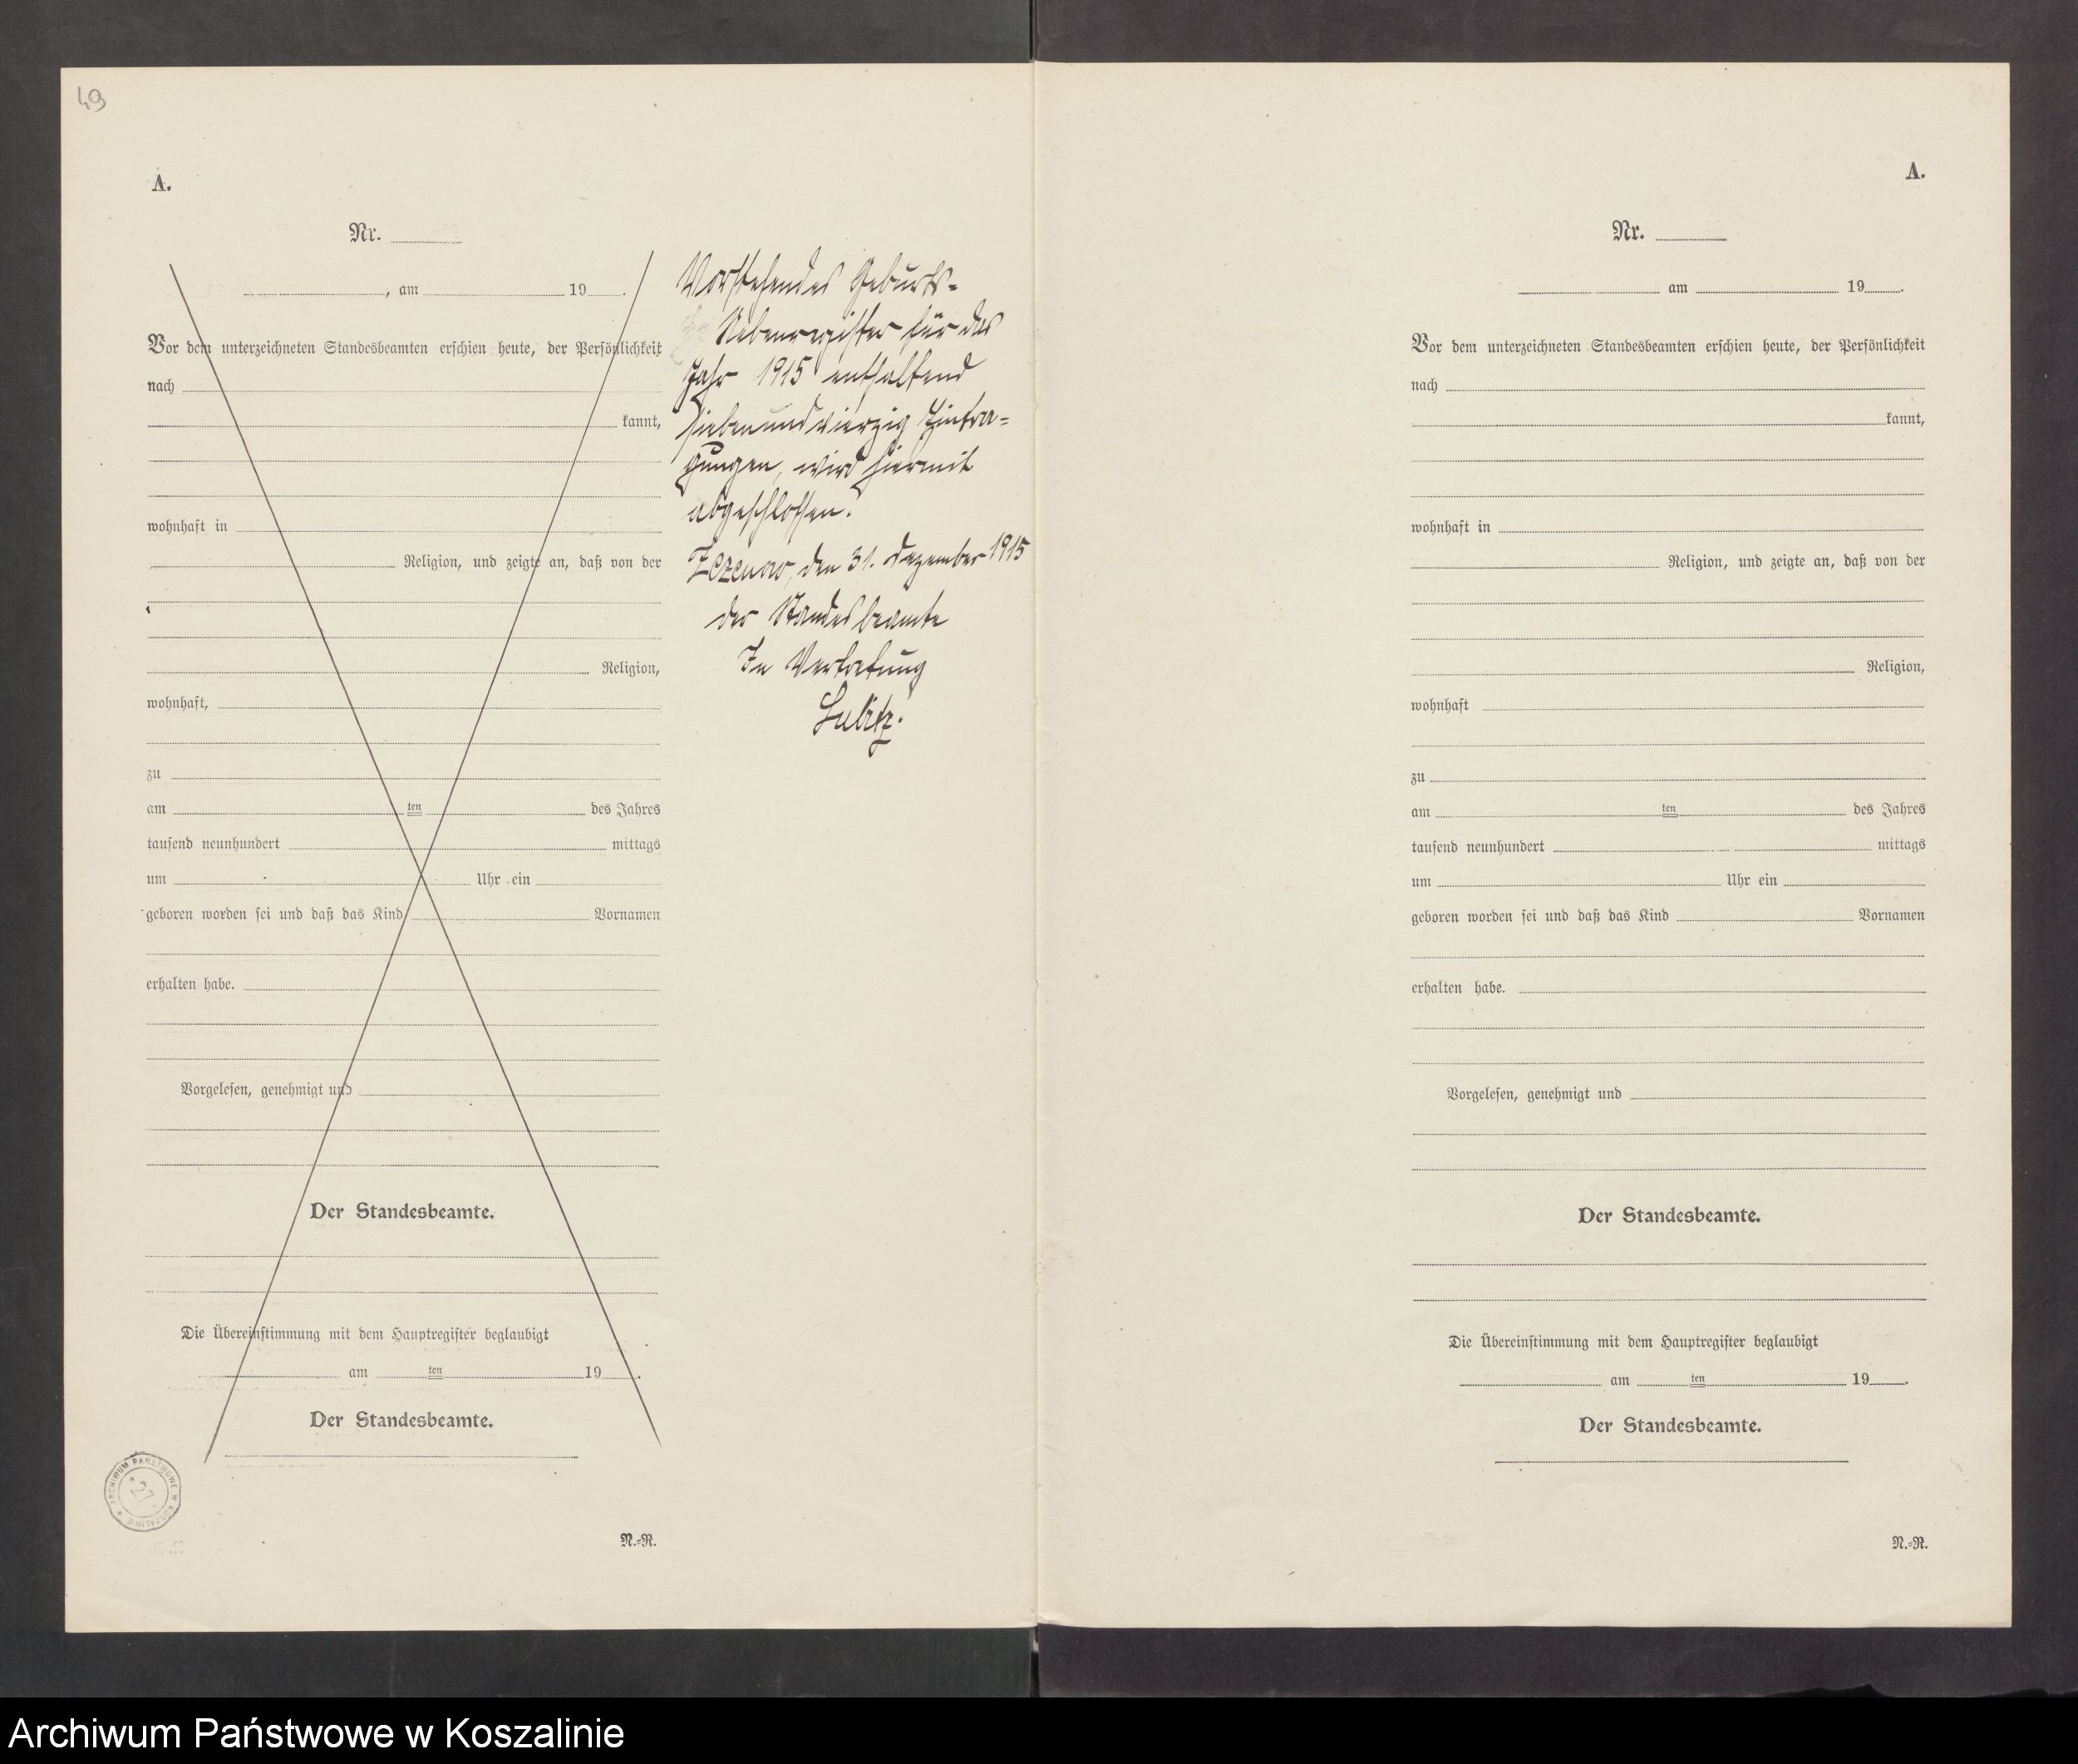 49
A.
Nr.
, am 19 .
Vor dem unterzeichneten Standesbeamten erschien heute, der Persönlichkeit
nach
kannt,
wohnhaft in
Religion, und zeigte an, daß von der
Religion,
wohnhaft,
zu
am ten des Jahres
tausend neunhundert mittags
um Uhr ein
geboren worden sei und daß das Kind Vornamen
erhalten habe.
Vorgelesen, genehmigt und
Der Standesbeamte.
Die Übereinstimmung mit dem Hauptregister beglaubigt
am ten 19 .
Der Standesbeamte.
ARCHIWUM PAŃSTWOWE W KOSZALINIE
* 27 *
N.=R.
Vorstehendes Geburts-
Nebenregister für das
Jahr 1915 enthaltend
siebenundvierzig Eintra=
gungen, wird hiermit
abgeschlossen.
Zezenow, den 31. Dezember 1915
der Standesbeamte
In Vertretung
Lubitz.
A.
Nr.
am 19 .
Vor dem unterzeichneten Standesbeamten erschien heute, der Persönlichkeit
nach
kannt,
wohnhaft in
Religion, und zeigte an, daß von der
Religion,
wohnhaft
zu
am ten des Jahres
tausend neunhundert mittags
um Uhr ein
geboren worden sei und daß das Kind Vornamen
erhalten habe.
Vorgelesen, genehmigt und
Der Standesbeamte.
Die Übereinstimmung mit dem Hauptregister beglaubigt
am ten 19 .
Der Standesbeamte.
N.=R.
Archiwum Państwowe w Koszalinie